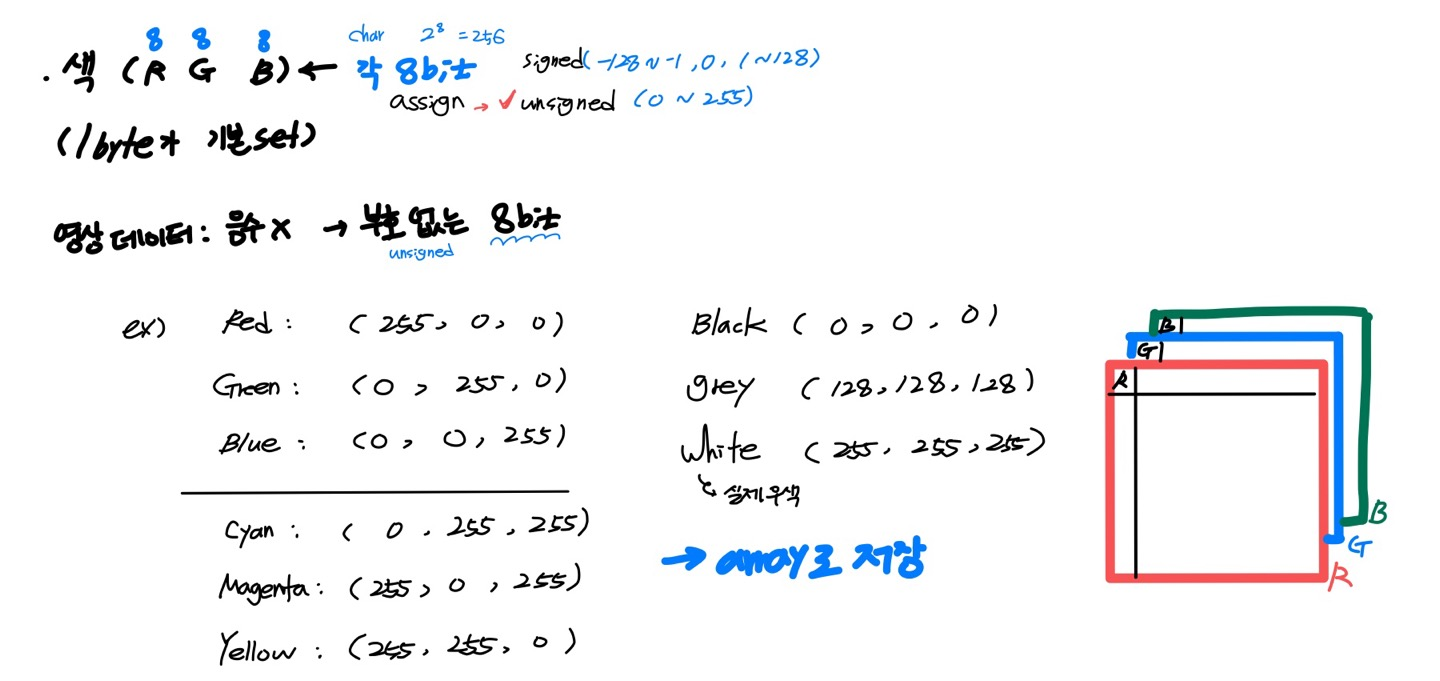 8 8 8 char 2⁸ = 256
· 색 (R G B) ← 각 8bit signed(-128 ~ -1, 0, 1 ~ 128)
assign → ✓ unsigned (0 ~ 255)
(1byte가 기본 set)
영상 데이터 : 음수 x → 부호 없는 8bit
unsigned
ex) Red : (255, 0, 0)
Green : (0, 255, 0)
Blue : (0, 0, 255)
Cyan : (0, 255, 255)
Magenta : (255, 0, 255)
Yellow : (255, 255, 0)
Black (0, 0, 0)
grey (128, 128, 128)
White (255, 255, 255)
↳ 실제 우색
→ array로 저장
B
G
R
B
G
R